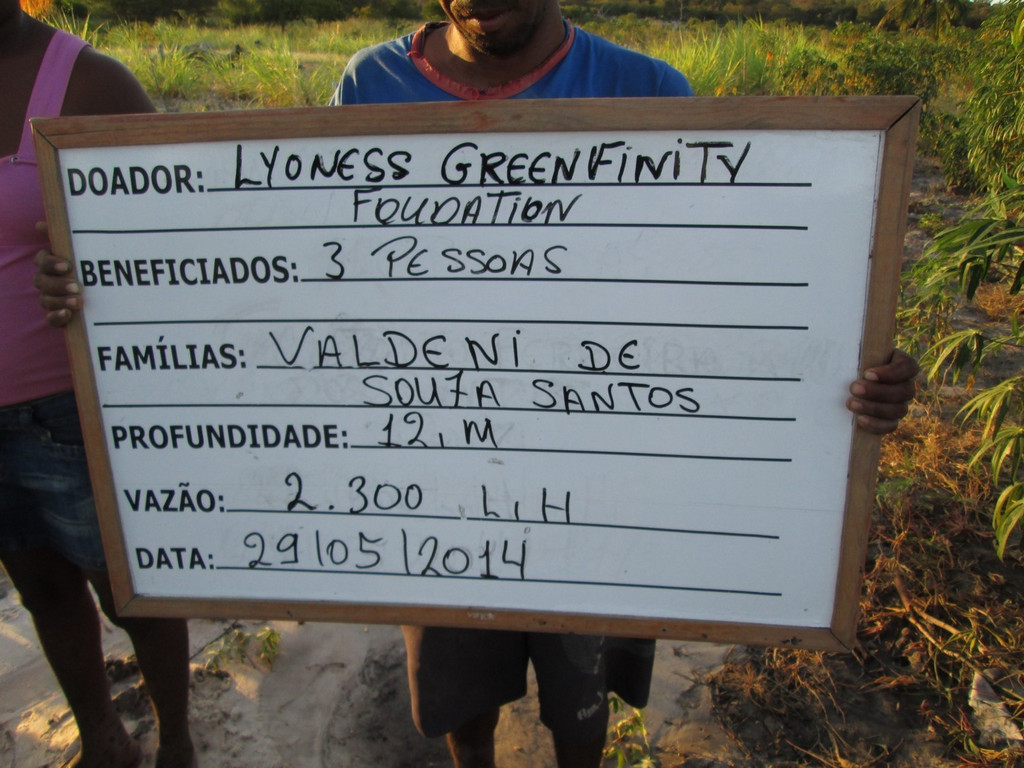 DOADOR: LYONESS GREENFINITY
FOUDATION
BENEFICIADOS: 3 PESSOAS
FAMÍLIAS: VALDENI DE
SOUZA SANTOS
PROFUNDIDADE: 12, M
VAZÃO: 2.300 L, H
DATA: 29/05/2014